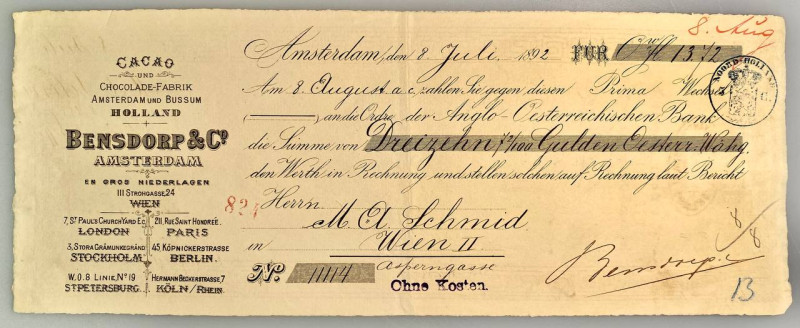 CACAO
UND
CHOCOLADE-FABRIK
AMSTERDAM UND BUSSUM
HOLLAND
BENSDORP & Co
AMSTERDAM
EN GROS NIEDERLAGEN
III STROHGASSE 24
WIEN
7, ST PAUL'S CHURCH YARD E.C.
LONDON
211, RUE SAINT HONORÉE
PARIS
3, STORA GRÅMUNKEGRÄND
STOCKHOLM
45 KÖPNICKERSTRASSE
BERLIN.
W.O. 8 LINIE, No 19
ST PETERSBURG
HERMANN BECKERSTRASSE, 7
KÖLN/RHEIN.
8. Aug
Amsterdam, den 8 Juli 1892 FÜR 13.72
Am 8 August a.c. zahlen Sie gegen diesen Prima Wechsel
an die Ordre der Anglo-Oesterreichischen Bank
die Summe von Dreizehn 72/100 Gulden Oesterr. Wahg.
den Werth in Rechnung und stellen solchen auf Rechnung laut Bericht
Herrn
M. A. Schmid
in Wien II
Asperngasse
No. 11114
Ohne Kosten.
NOORD-HOLLAND
Bensdorp
8/8
13